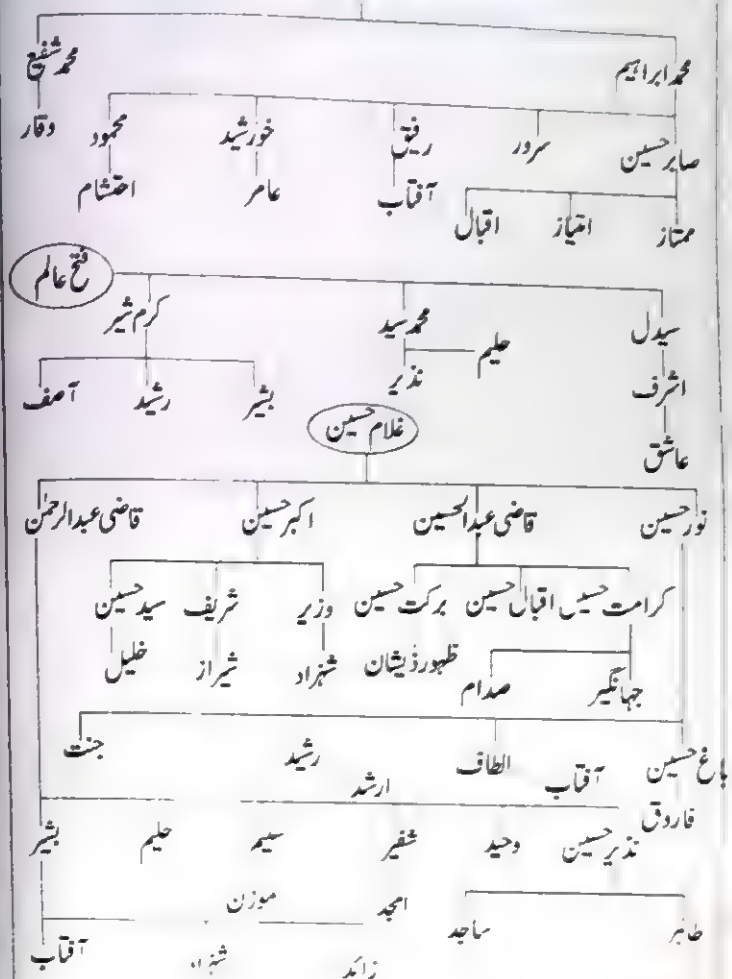 محمد ابراہیم محمد شفیع
صابر حسین سرور رفیق خورشید محمود وقار
ممتاز امتیاز اقبال آفتاب عامر احتشام
فتح عالم
سیدل محمد سید کرم شیر
اشرف حلیم نذیر بشیر رشید آصف
عاشق
غلام حسین
نور حسین قاضی عبدالحسین اکبر حسین قاضی عبدالرحمٰن
کرامت حسین اقبال حسین برکت حسین وزیر شریف سید حسین
جہانگیر صدام ظہور ذیشان شہزاد شیراز خلیل
باغ حسین آفتاب الطاف ارشد رشید جنت
فاروق
نذیر حسین وحید شفیر سیم حلیم بشیر
طاہر ساجد امجد موزن
زائد آفتاب